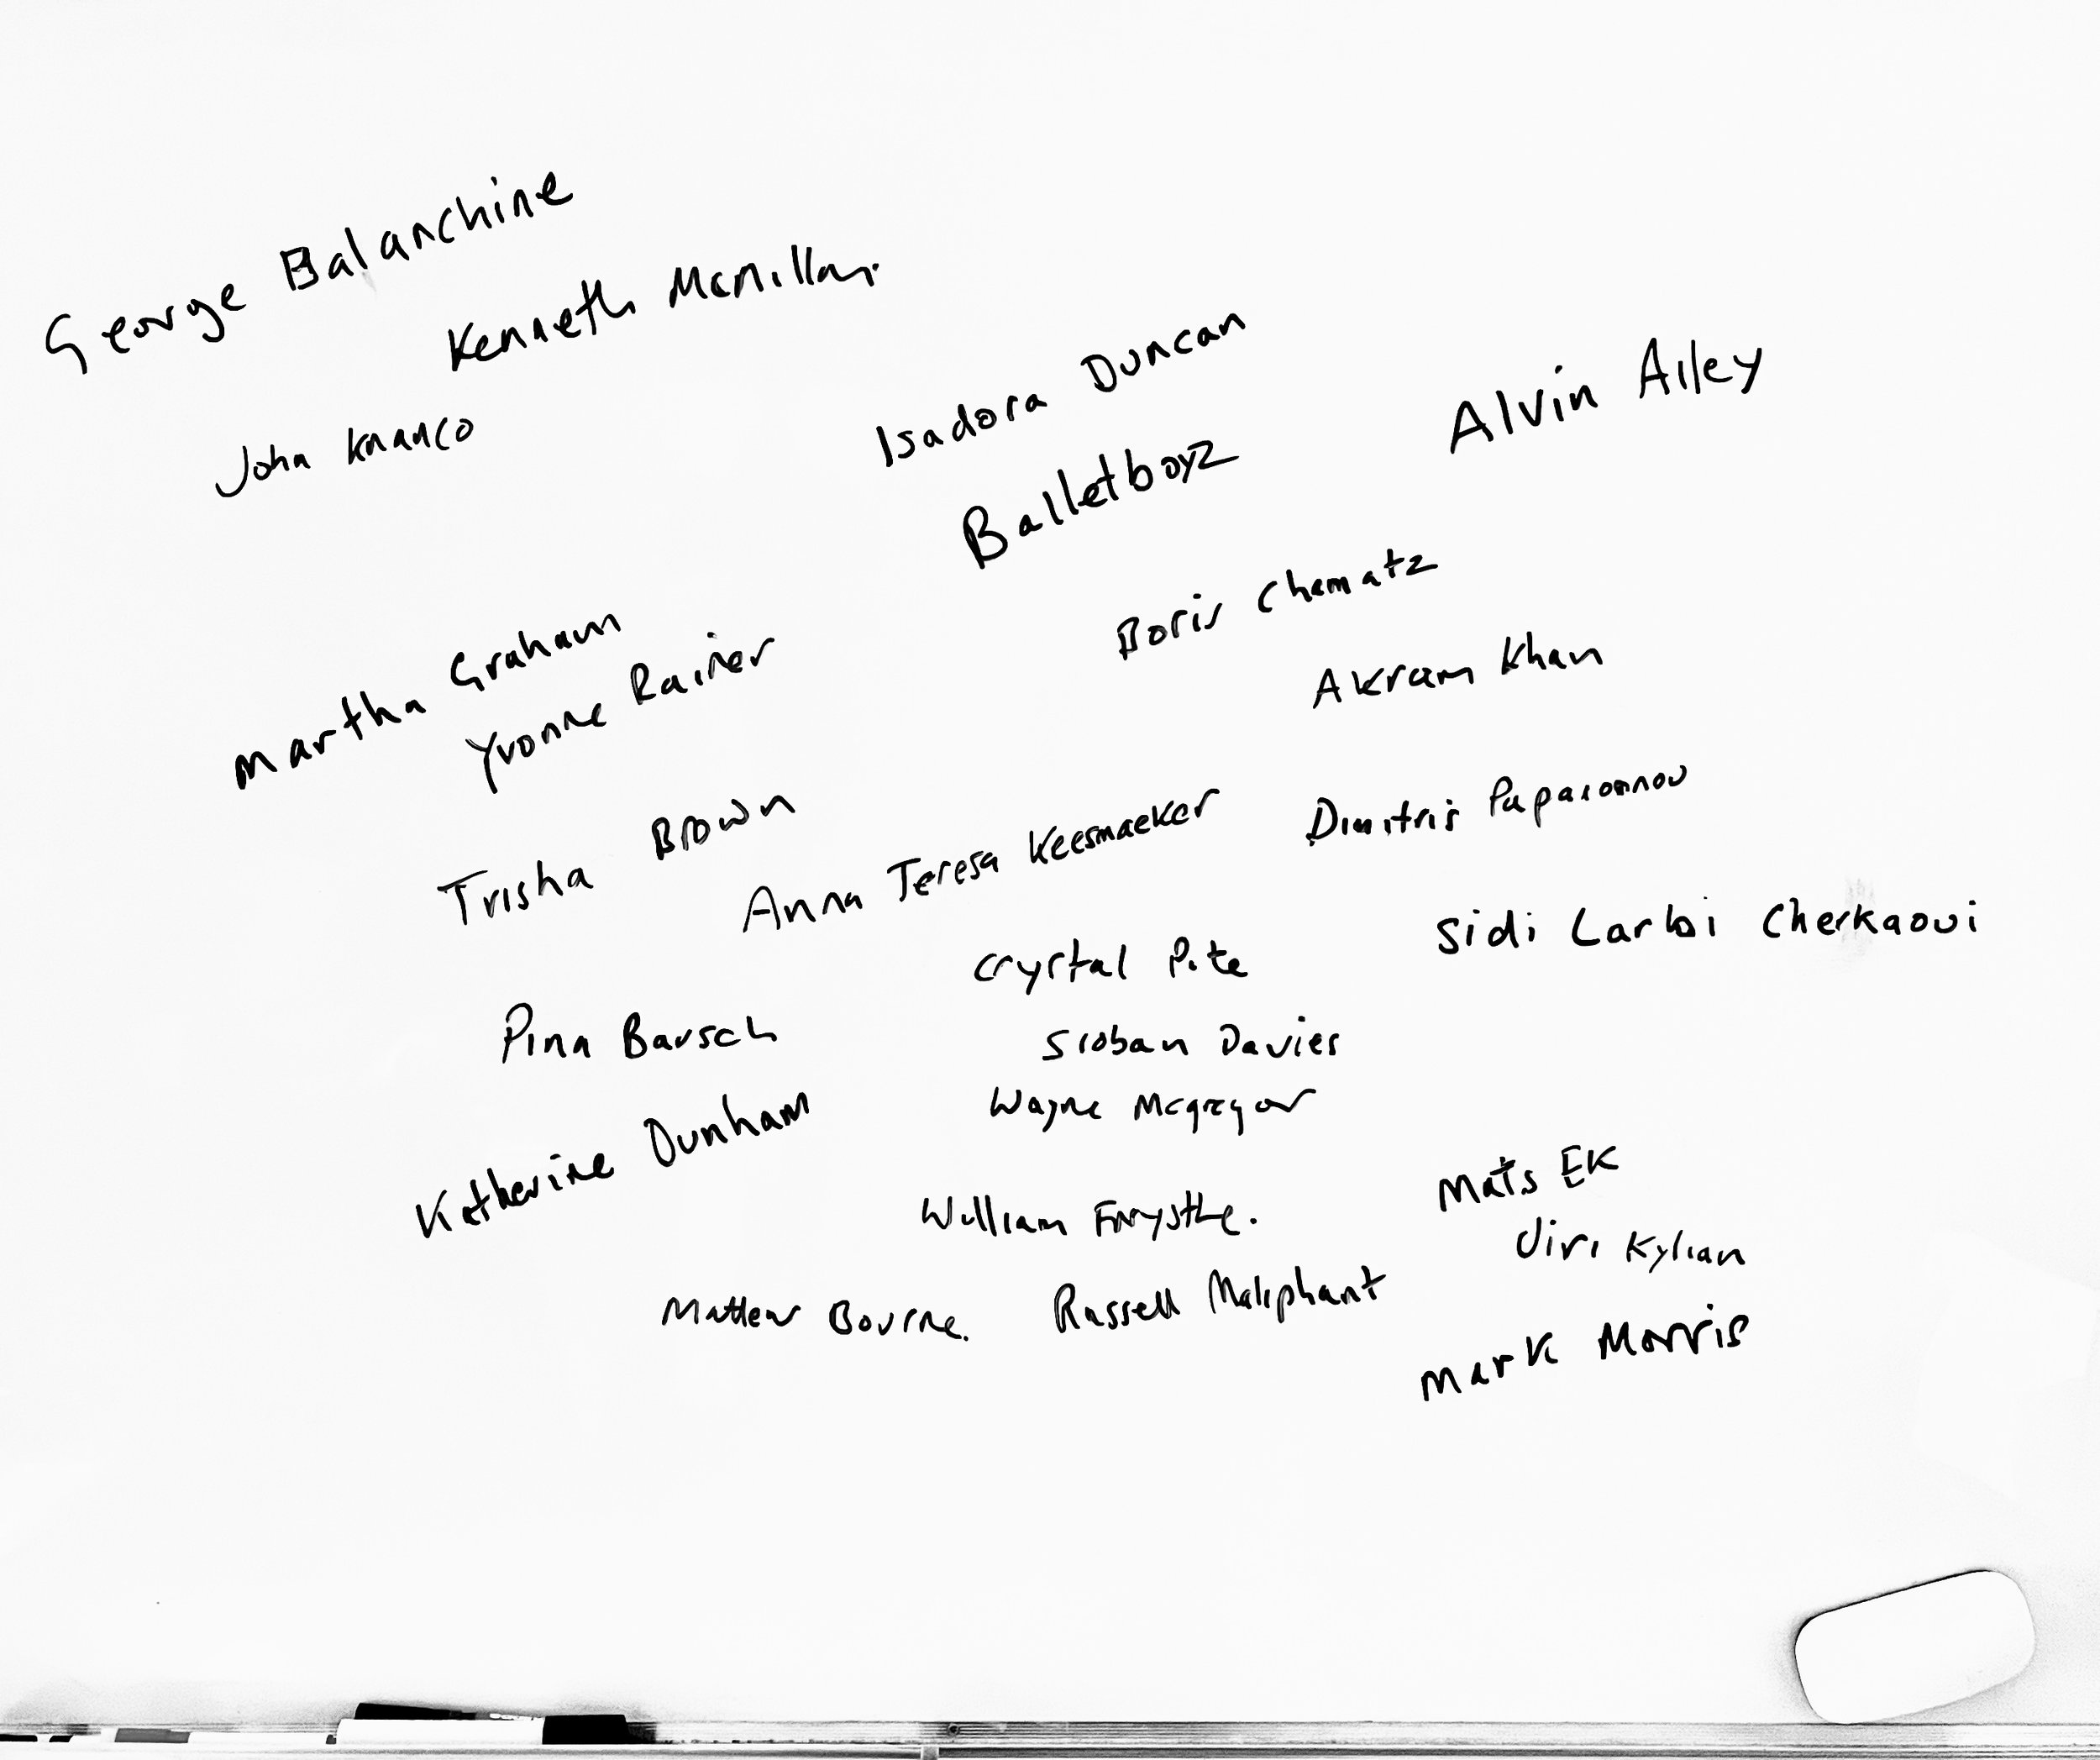 George Balanchine
Kenneth McMillan.
John Knanco
Isadora Duncan
Alvin Ailey
Balletboyz
Boris Chematz
Martha Graham
Yvonne Rainer
Akram Khan
Trisha Brown
Anna Teresa Keesmaeker
Dimitris Papaioannou
Sidi Larbi Cherkaoui
Crystal Pite
Pina Bausch
Sioban Davies
Wayne Mcgregor
Katherine Dunham
Mats EK
William Forysthe.
Jiri Kylian
Mattew Bourne.
Russell Maliphant
Mark Morris